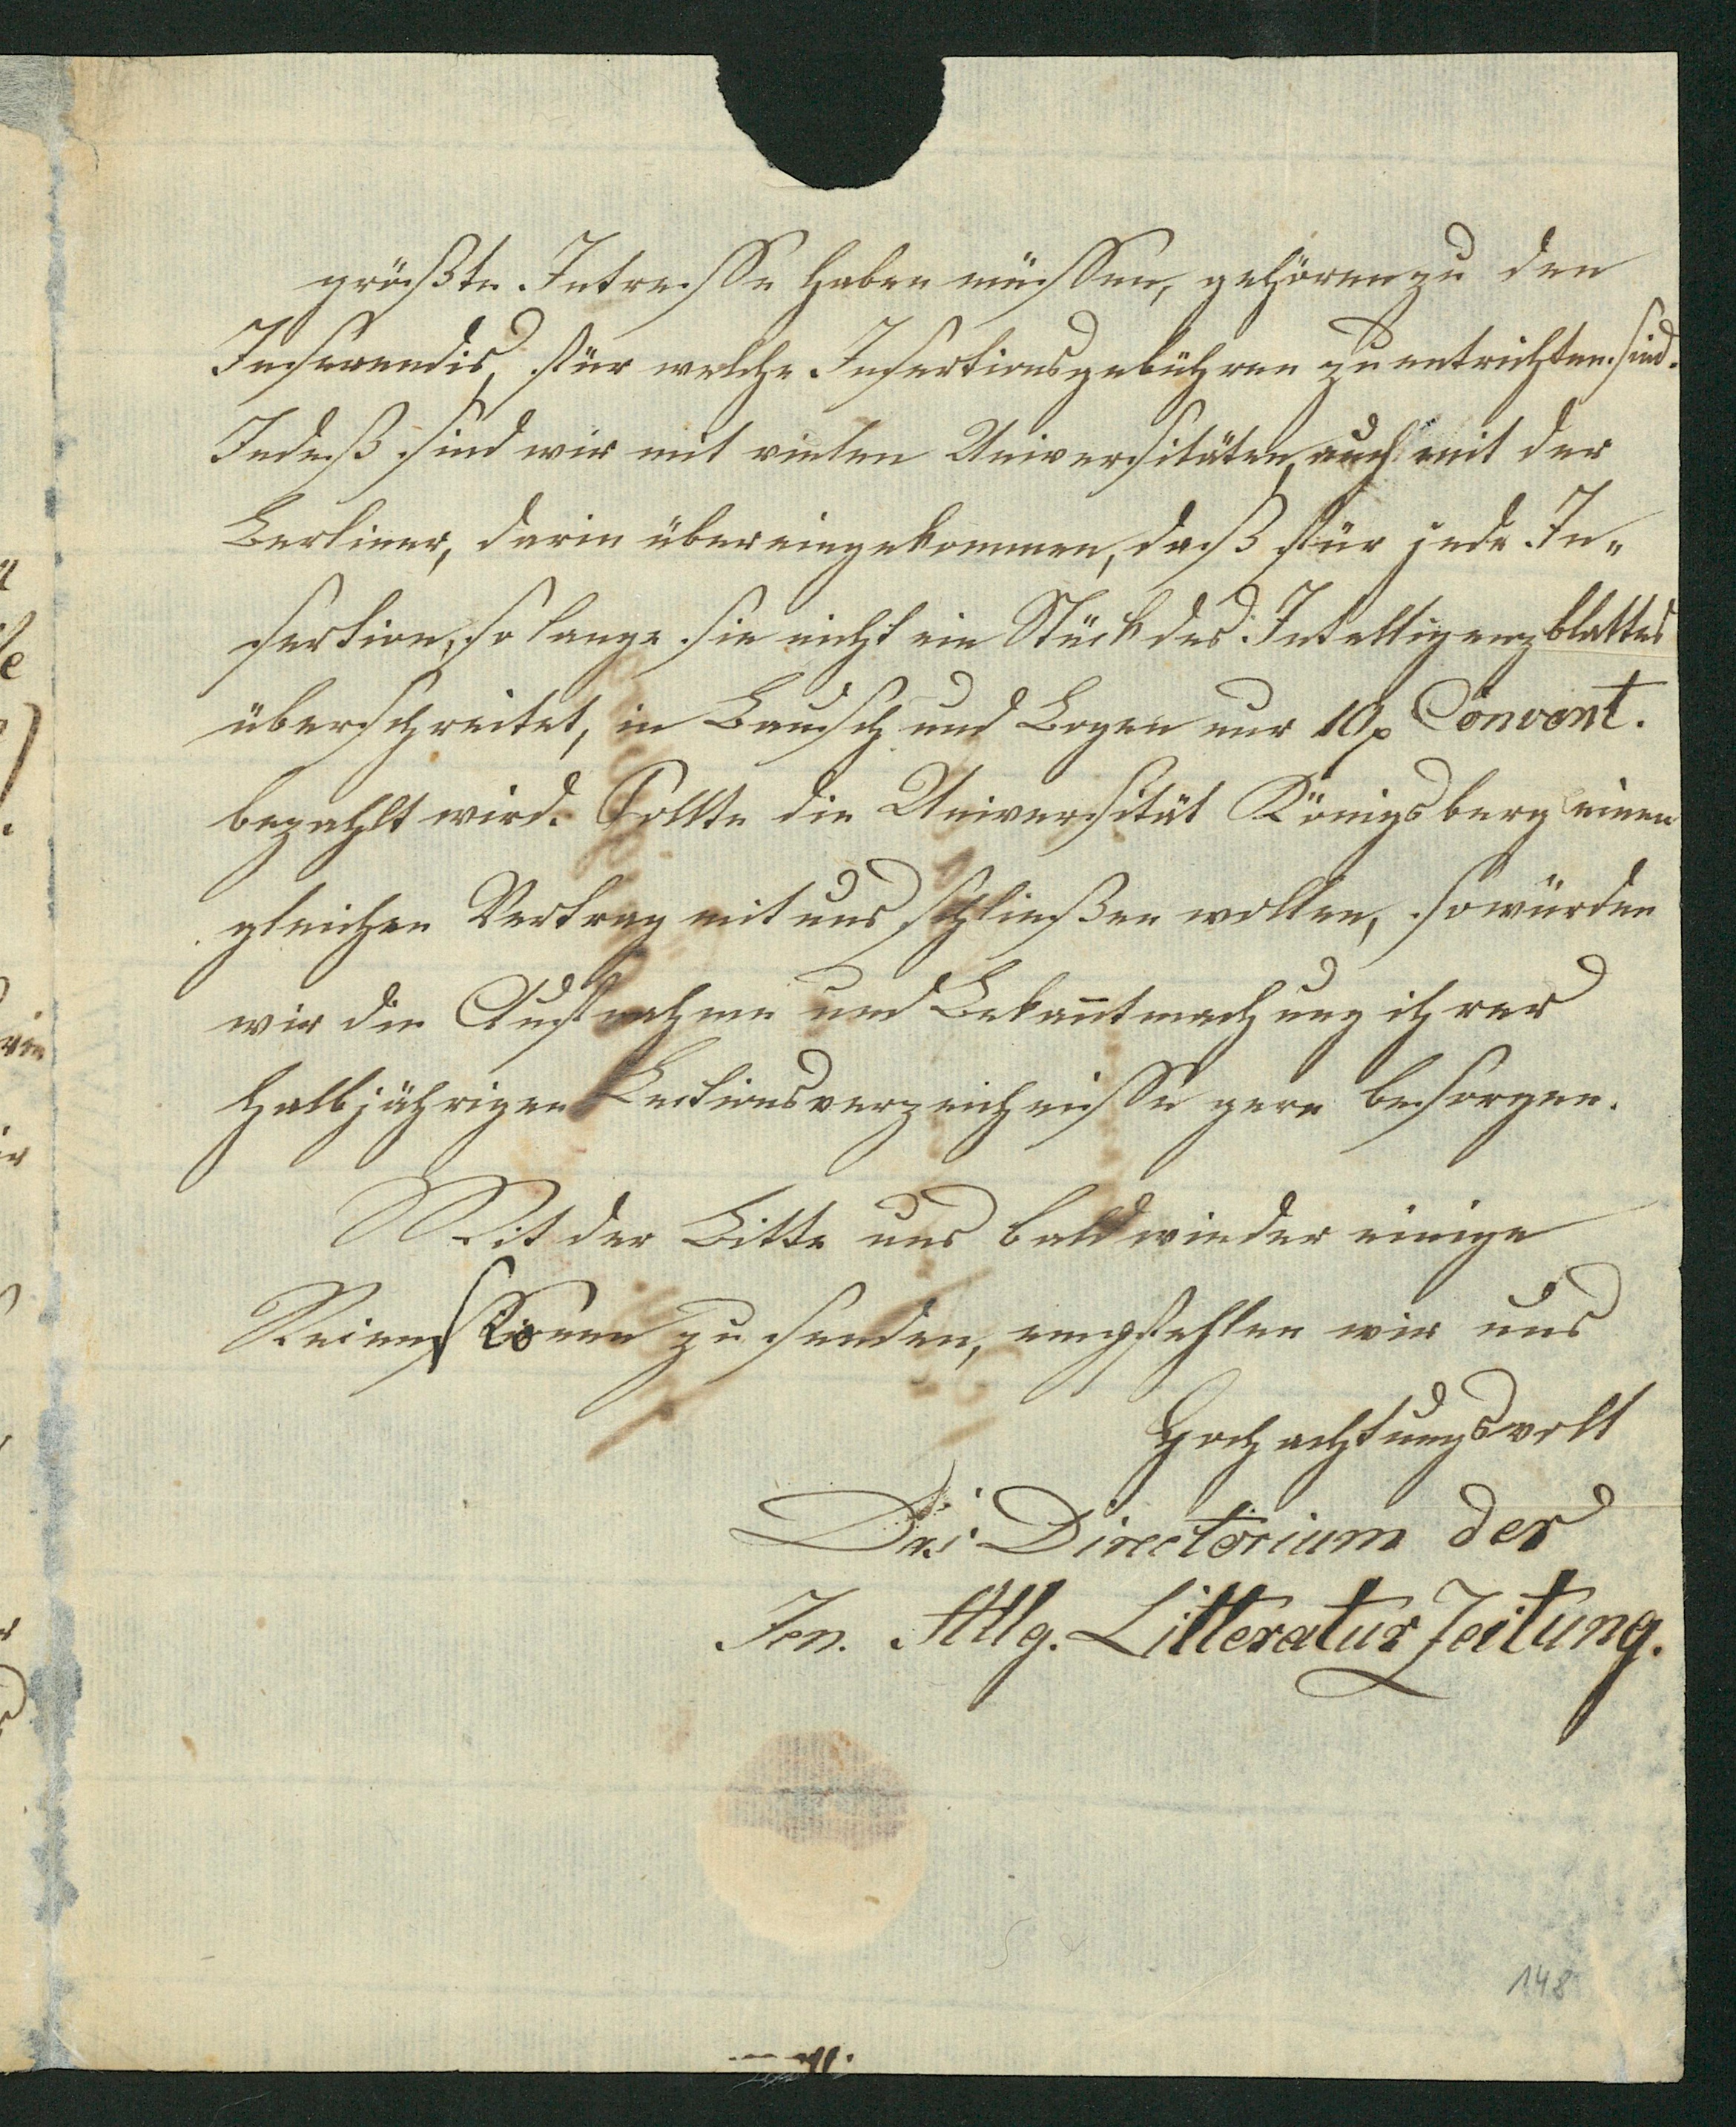 größte Intresse haben müssen, gehören zu den
Inserendis, für welche Insertionsgebühren zu entrichten sind.
Indeß sind wir mit vielen Universitäten, auch mit der
Berliner, darin übereingekommen, daß für jede In„
sertion, so lange sie nicht ein Stück des Intelligenzblattes
überschreitet, in Bausch und Bogen nur Convent.
bezahlt wird. Sollte die Universität Königsberg einen
gleichen Vertrag mit uns schließen wollen, so würden
wir die Aufnahme und Bekan̄tmachung ihrer
halbjährigen Lectionsverzeichnisse gern besorgen.
Mit der Bitte uns bald wieder einige
Recensionen zu senden, empfehlen wir uns
Hochachtungsvoll
Das Directorium der
Jen. Allg. Litteratur Zeitung.
148